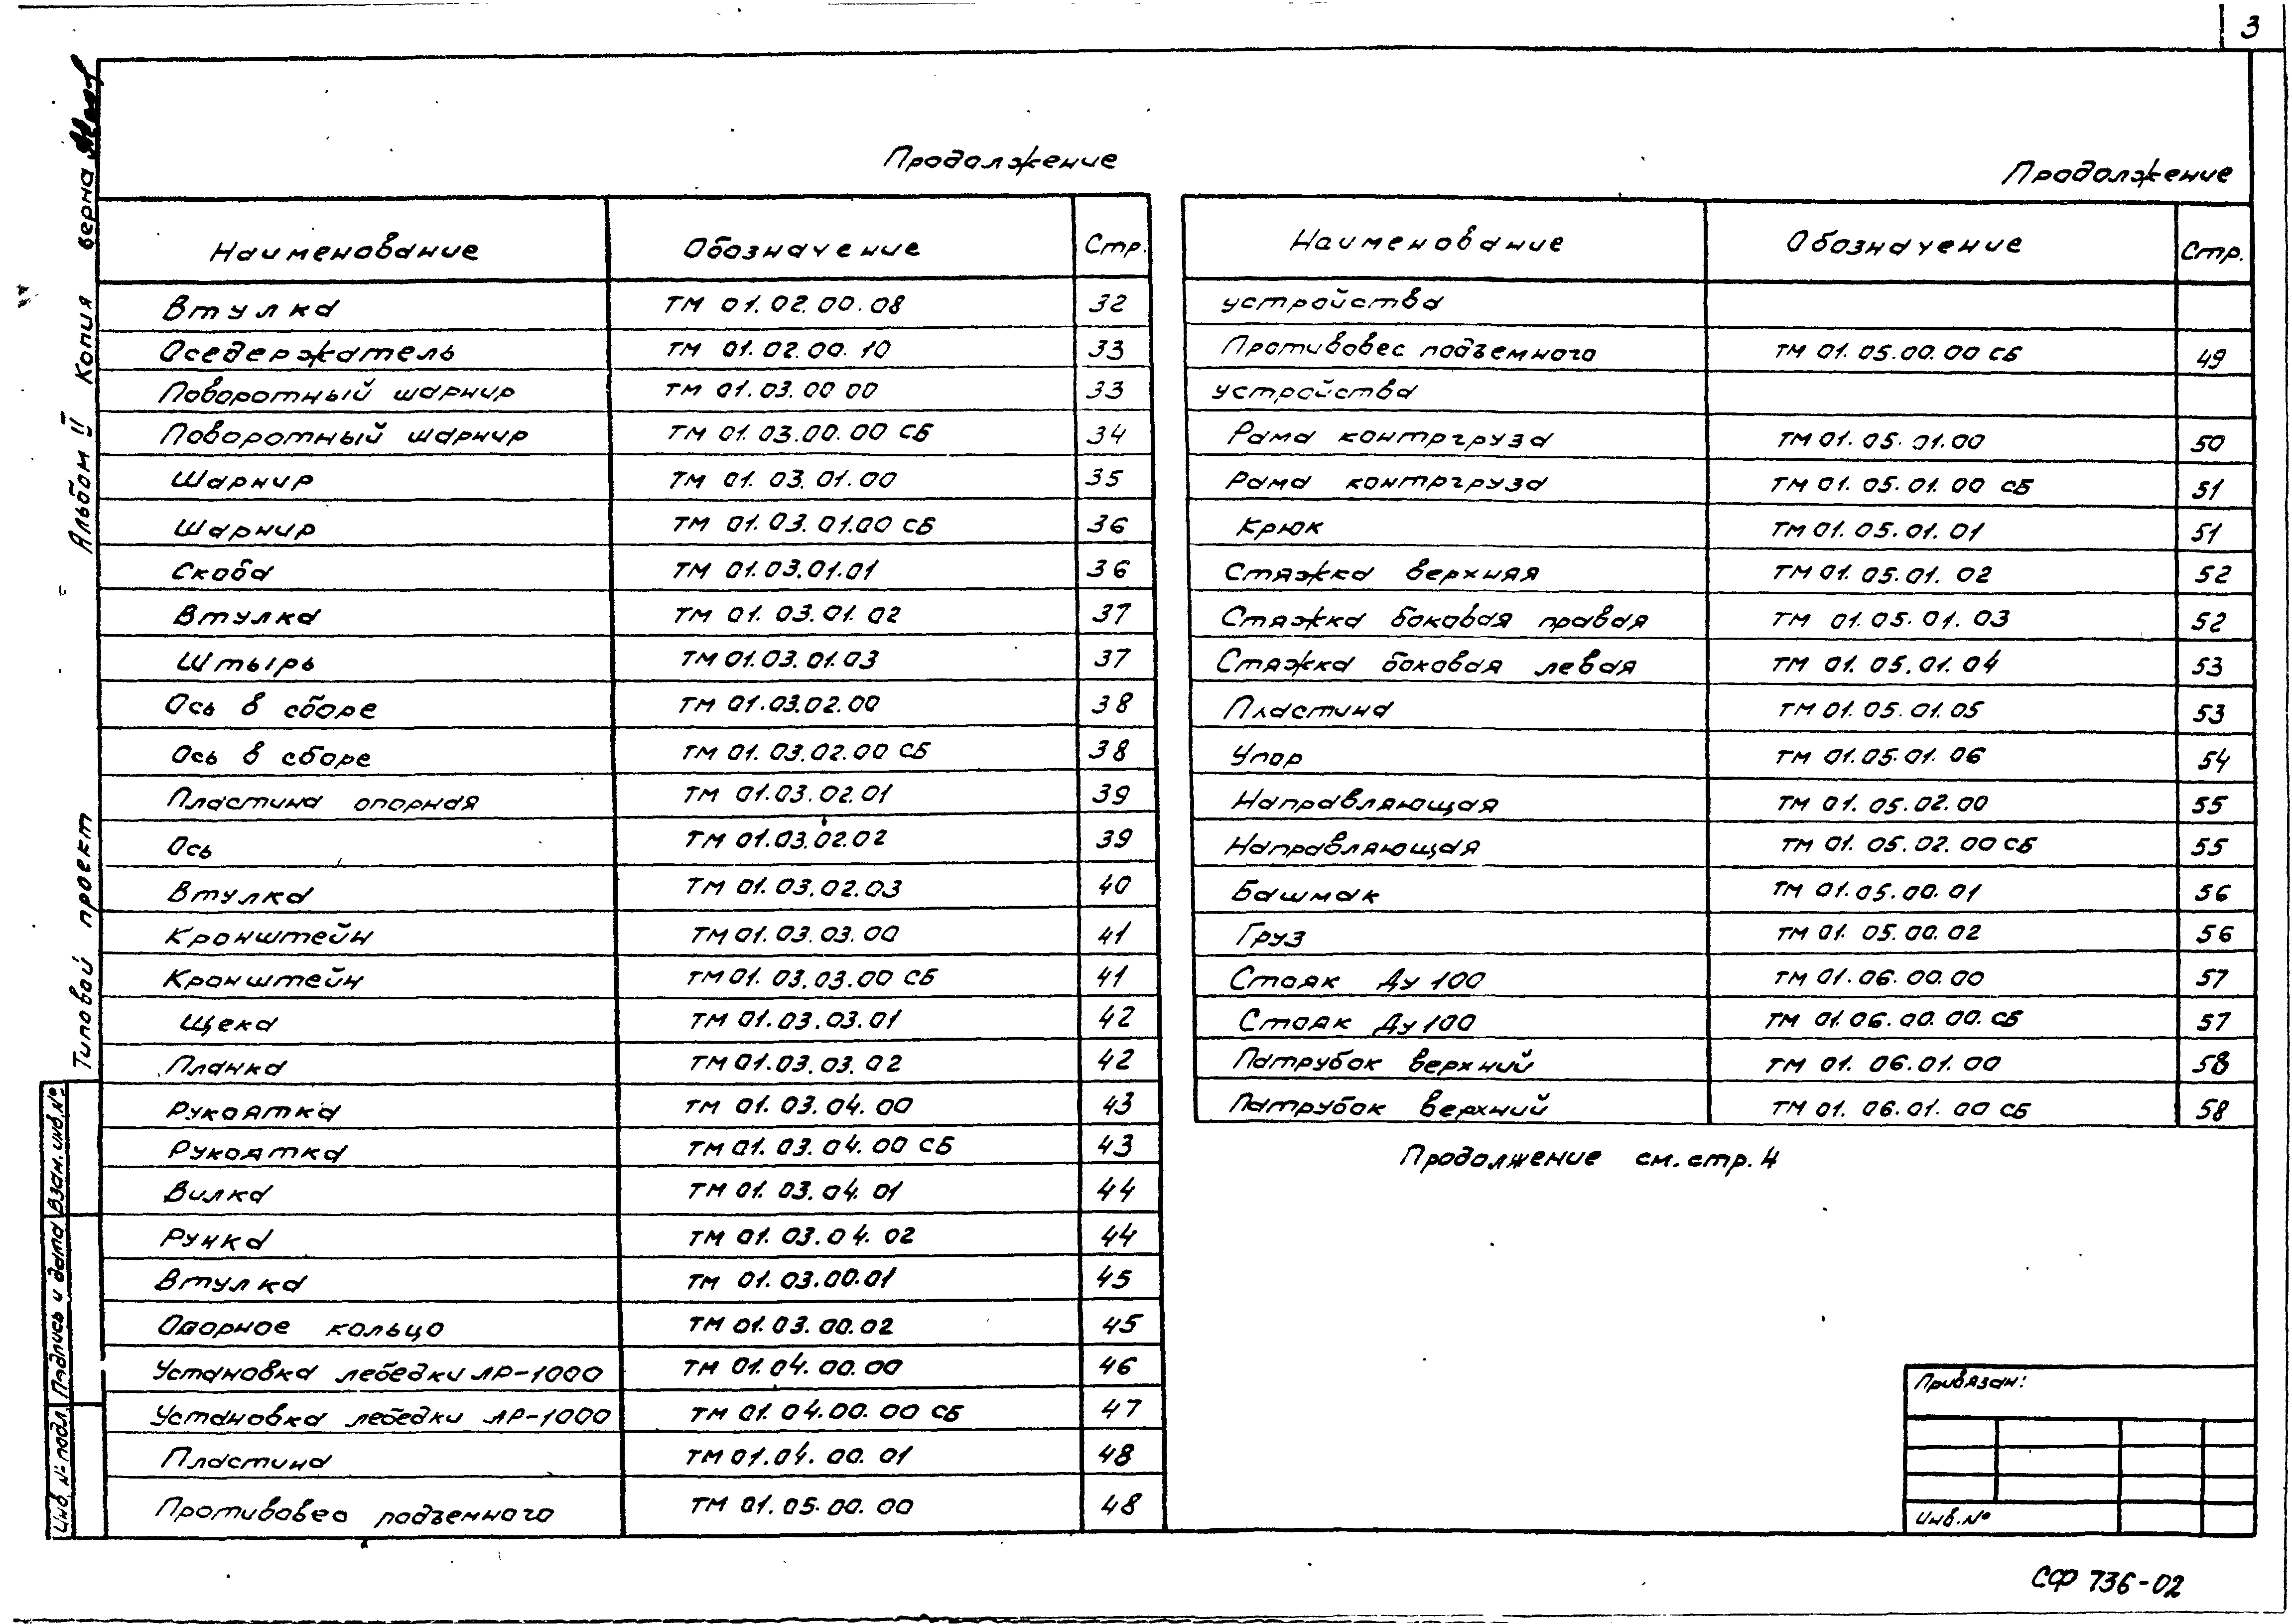 3
Продолжение
Наименование Обозначение Стр.
Втулка ТМ 01.02.00.08 32
Оседержатель ТМ 01.02.00.10 33
Поворотный шарнир ТМ 01.03.00 00 33
Поворотный шарнир ТМ 01.03.00.00 СБ 34
Шарнир ТМ 01.03.01.00 35
Шарнир ТМ 01.03.01.00 СБ 36
Скоба ТМ 01.03.01.01 36
Втулка ТМ 01.03.01.02 37
Штырь ТМ 01.03.01.03 37
Ось в сборе ТМ 01.03.02.00 38
Ось в сборе ТМ 01.03.02.00 СБ 38
Пластина опорная ТМ 01.03.02.01 39
Ось ТМ 01.03.02.02 39
Втулка ТМ 01.03.02.03 40
Кронштейн ТМ 01.03.03.00 41
Кронштейн ТМ 01.03.03.00 СБ 41
Щека ТМ 01.03.03.01 42
Планка ТМ 01.03.03.02 42
Рукоятка ТМ 01.03.04.00 43
Рукоятка ТМ 01.03.04.00 СБ 43
Вилка ТМ 01.03.04.01 44
Ручка ТМ 01.03.04.02 44
Втулка ТМ 01.03.00.01 45
Опорное кольцо ТМ 01.03.00.02 45
Установка лебедки ЛР-1000 ТМ 01.04.00.00 46
Установка лебедки ЛР-1000 ТМ 01.04.00.00 СБ 47
Пластина ТМ 01.04.00.01 48
Противовес подъемного ТМ 01.05.00.00 48
Продолжение
Наименование Обозначение Стр.
устройства
Противовес подъемного ТМ 01.05.00.00 СБ 49
устройства
Рама контргруза ТМ 01.05.01.00 50
Рама контргруза ТМ 01.05.01.00 СБ 51
Крюк ТМ 01.05.01.01 51
Стяжка верхняя ТМ 01.05.01.02 52
Стяжка боковая правая ТМ 01.05.01.03 52
Стяжка боковая левая ТМ 01.05.01.04 53
Пластина ТМ 01.05.01.05 53
Упор ТМ 01.05.01.06 54
Направляющая ТМ 01.05.02.00 55
Направляющая ТМ 01.05.02.00 СБ 55
Башмак ТМ 01.05.00.01 56
Груз ТМ 01.05.00.02 56
Стояк Ду 100 ТМ 01.06.00.00 57
Стояк Ду 100 ТМ 01.06.00.00.СБ 57
Патрубок верхний ТМ 01.06.01.00 58
Патрубок верхний ТМ 01.06.01.00 СБ 58
Продолжение см.стр.4
Привязан:
Инв.№
СФ 736-02
Типовой проект Альбом II Копия верна
Инв.№ подл. Подпись и дата Взам.инв.№